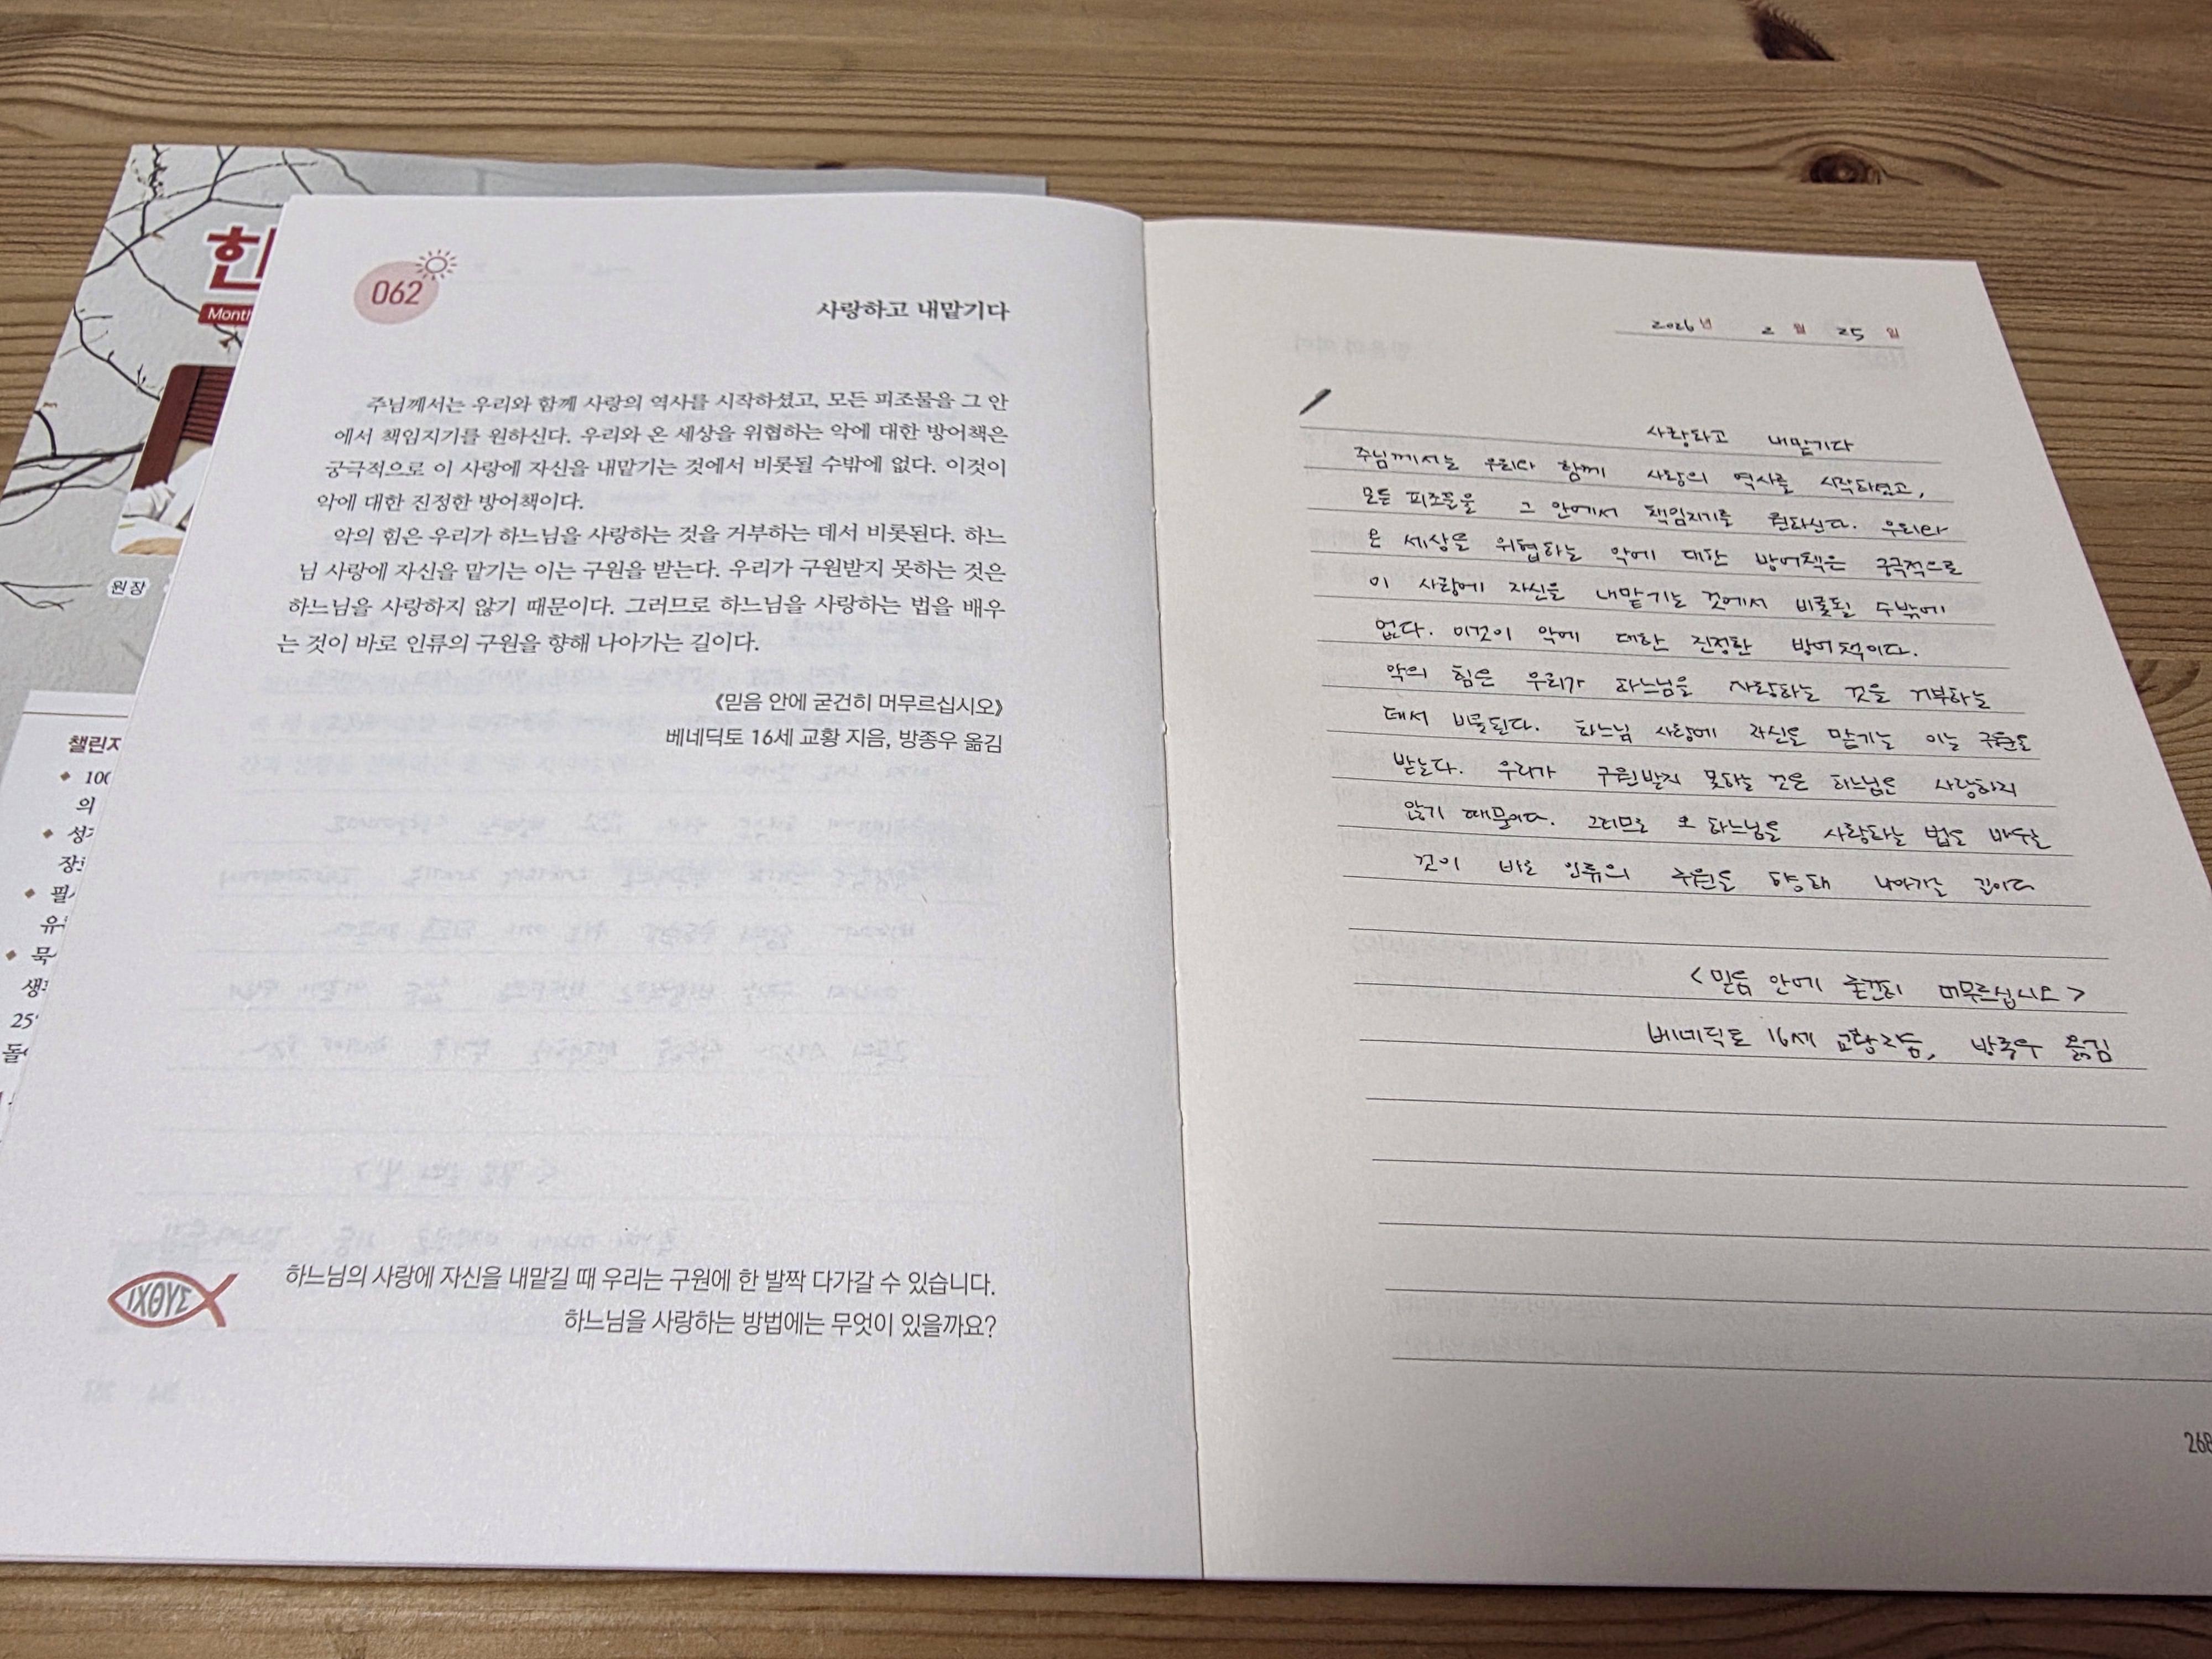 한
Month
원장
챌린지
100
의
성
장
필
유
묵
생
25
돌
062
사랑하고 내맡기다
주님께서는 우리와 함께 사랑의 역사를 시작하셨고, 모든 피조물을 그 안
에서 책임지기를 원하신다. 우리와 온 세상을 위협하는 악에 대한 방어책은
궁극적으로 이 사랑에 자신을 내맡기는 것에서 비롯될 수밖에 없다. 이것이
악에 대한 진정한 방어책이다.
악의 힘은 우리가 하느님을 사랑하는 것을 거부하는 데서 비롯된다. 하느
님 사랑에 자신을 맡기는 이는 구원을 받는다. 우리가 구원받지 못하는 것은
하느님을 사랑하지 않기 때문이다. 그러므로 하느님을 사랑하는 법을 배우
는 것이 바로 인류의 구원을 향해 나아가는 길이다.
《믿음 안에 굳건히 머무르십시오》
베네딕토 16세 교황 지음, 방종우 옮김
ΙΧΘΥΣ
하느님의 사랑에 자신을 내맡길 때 우리는 구원에 한 발짝 다가갈 수 있습니다.
하느님을 사랑하는 방법에는 무엇이 있을까요?
2026년 2월 25일
사랑하고 내맡기다
주님께서는 우리와 함께 사랑의 역사를 시작하셨고,
모든 피조물을 그 안에서 책임지기를 원하신다. 우리와
온 세상을 위협하는 악에 대한 방어책은 궁극적으로
이 사랑에 자신을 내맡기는 것에서 비롯될 수밖에
없다. 이것이 악에 대한 진정한 방어책이다.
악의 힘은 우리가 하느님을 사랑하는 것을 거부하는
데서 비롯된다. 하느님 사랑에 자신을 맡기는 이는 구원을
받는다. 우리가 구원받지 못하는 것은 하느님을 사랑하지
않기 때문이다. 그러므로 하느님을 사랑하는 법을 배우는
것이 바로 인류의 구원을 향해 나아가는 길이다
<믿음 안에 굳건히 머무르십시오>
베네딕토 16세 교황 지음, 방종우 옮김
268